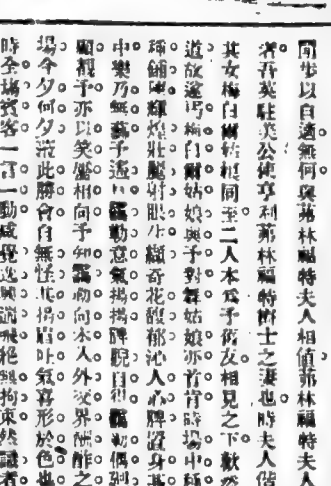 同步以自適無何與菲林福特夫人相値菲林福特夫人
者吾英駐美公使亨利菲林福特爵士之妻也時夫人偕
其女梅白爾姑娘同至二人本爲予舊友相見之下歡然
道故邀梅白爾姑娘與予對舞姑娘亦首肯時場中種
種鋪陳輝煌壯麗射眼生纈奇花馥郁沁人心脾置身其
中樂乃無藝予遙見 勒意氣揚揚睥睨自得 勒偶
顧 予亦以笑靨相向予知 勒向本人外交界酬酢之
場今夕何夕 此勝會自無怪其揚眉吐氣喜形於色也
時全場賓客一言一動咸 逸興遄飛絕無拘束然識者